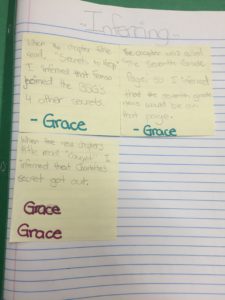 ~Inferring~
When the chapter title
read, "Secrets to Keep"
I inferred that Fiona
joined the GGG's
4 other secrets.
- Grace
The chapter was called
The Seventh Grade
Page, so I inferred
that the seventh grade
news would be on
that page.
- Grace
When the new chapters
title read "Caught" I
inferred that Charlotte's
secret got out.
Grace
Grace